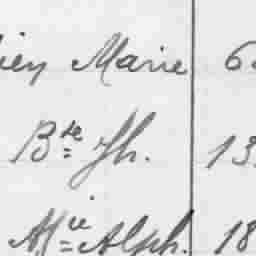 Marie 6
Bte Jh. 13
Mie Alph. 18